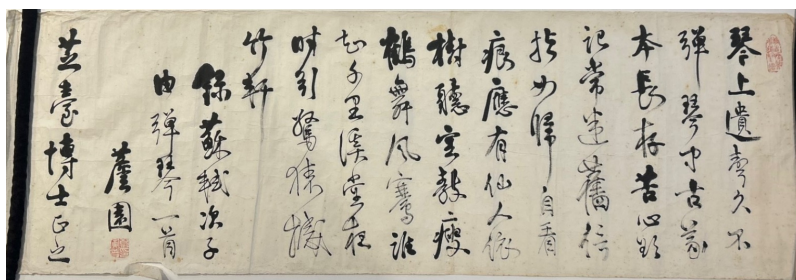 琴上遺聲久不
彈琴中古義
本長存苦心欲
記常迷舊信
指如歸自著
痕應有仙人依
樹聽空教瘦
鶴舞風騫誰
知千里溪堂夜
時引驚猿撼
竹軒
錄蘇軾次子
由彈琴一首
園
博士正之